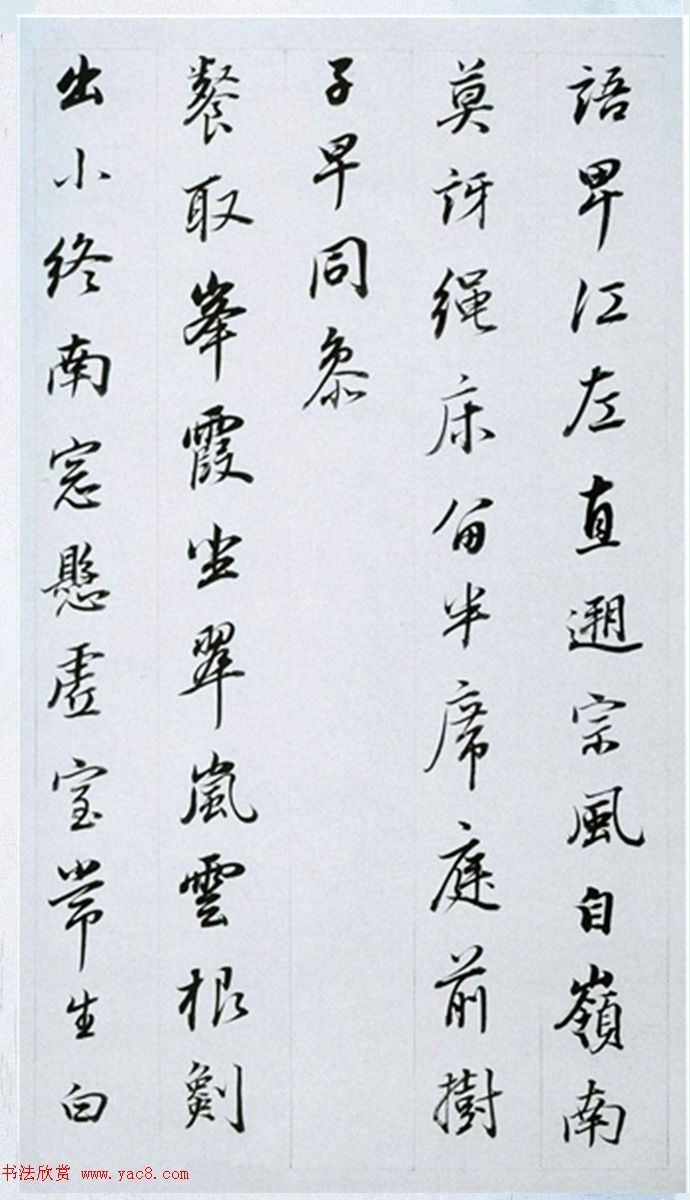 語卑江左直遡宗風自嶺南
莫訝繩床分半席庭前樹
子早同叅
餐取峯霞坐翠嵐雲根劖
出小終南窓懸虛室常生白
书法欣赏 www.yac8.com